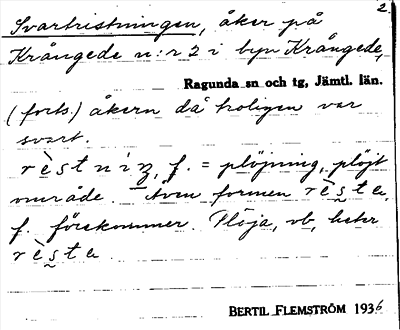 2.
Svartristningen, åker på
Krångede n:r 2 i byn Krångede,
Ragunda sn och tg, Jämtl. län.
(forts.) åkern då troligen var
svart.
rèstniŋ, f. = plöjning, plöjt
område. Även formen rèsta,
f. förekommer. Plöja, vb, heter
rèsta
BERTIL FLEMSTRÖM 1936